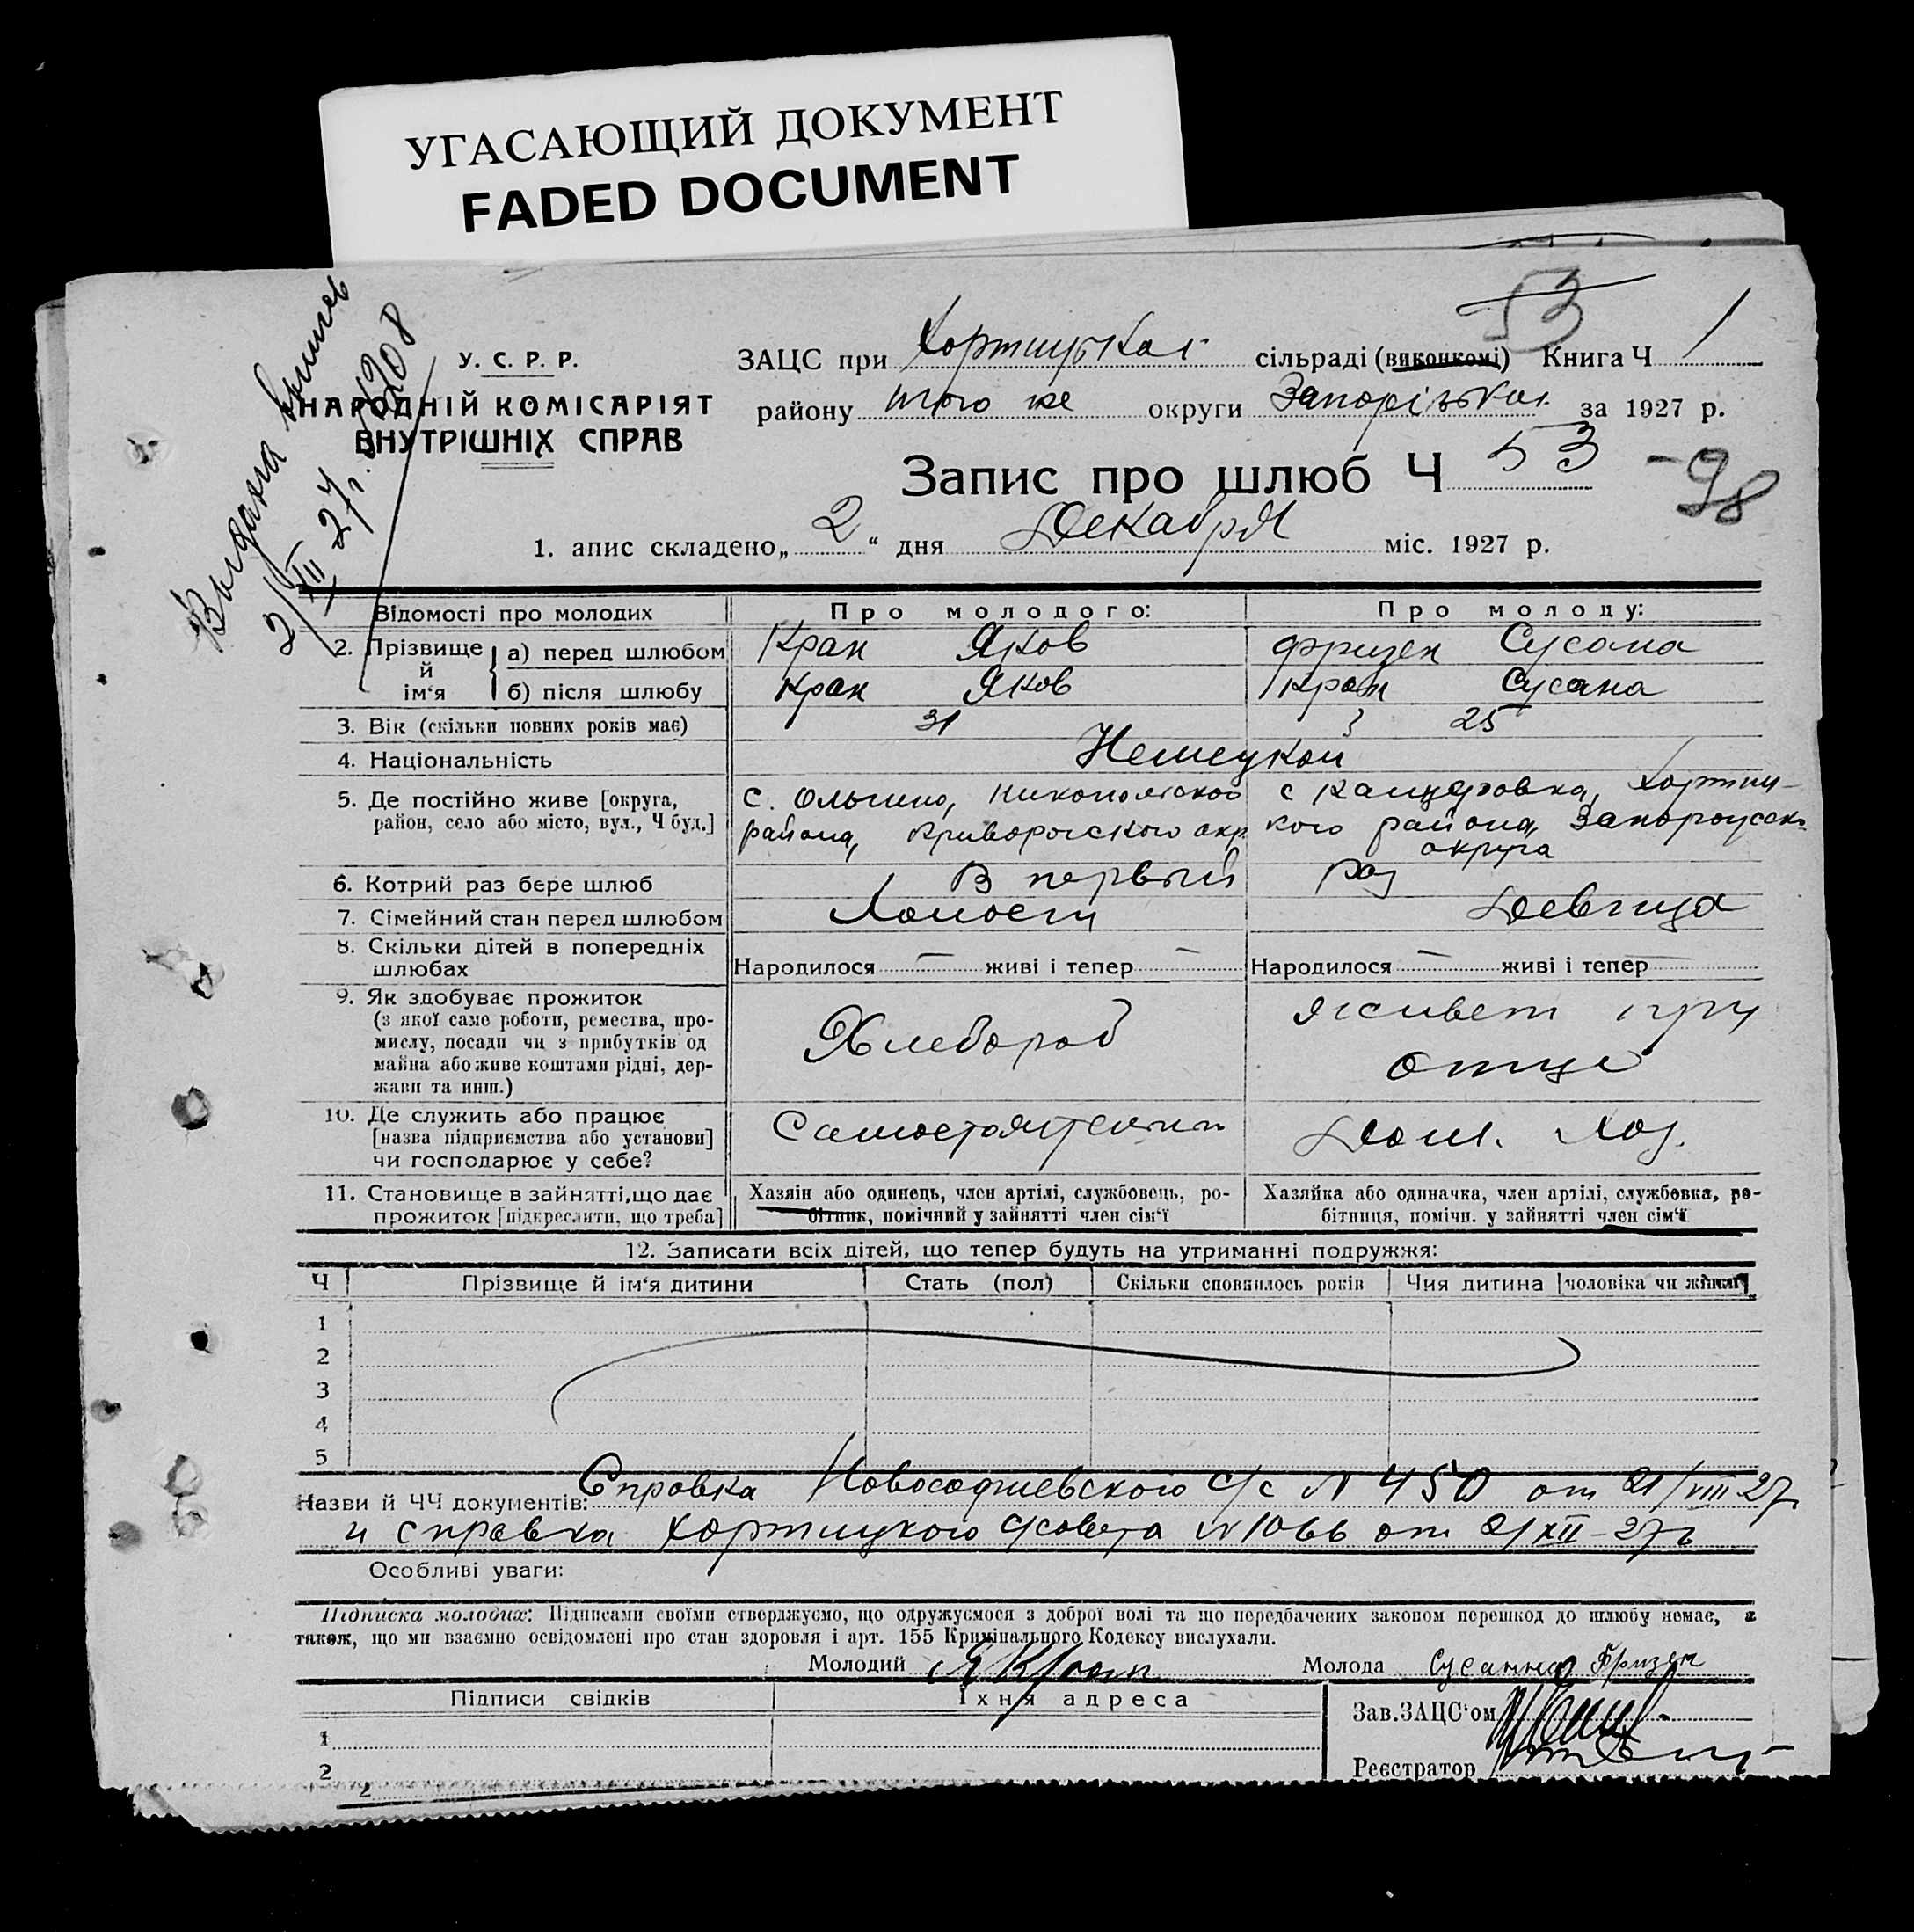 УГАСАЮЩИЙ ДОКУМЕНТ
FADED DOCUMENT
53
Выдана
2/XII 27 г.
У. С. Р. Р.
НАРОДНІЙ КОМІСАРІЯТ
ВНУТРІШНІХ СПРАВ
ЗАЦС при Хортицькой сільраді (виконкомі) Книга Ч 1
району того же округи Запорізькой за 1927 р.
Запис про шлюб Ч 53 -98
1. апис складено „ 2 “ дня Декабря міс. 1927 р.
Відомості про молодих Про молодого: Про молоду:
2. Прізвище й ім‘я
а) перед шлюбом Кран Яков Фризен Сусана
б) після шлюбу Кран Яков Кран Сусана
3. Вік (скільки повних років має) 31 25
4. Національність Немецкой
5. Де постійно живе [округа, с. Ольгино, Никопольского с Канцеровка, Хортиц-
район, село або місто, вул., Ч буд.] района, Криворогского окр. кого района, Запорожск.
округа
6. Котрий раз бере шлюб В первый раз
7. Сімейний стан перед шлюбом Холост Девица
8. Скільки дітей в попередніх
шлюбах Народилося — живі і тепер — Народилося — живі і тепер
9. Як здобуває прожиток
(з якої саме роботи, ремества, про-
мислу, посади чи з прибутків од
майна або живе коштами рідні, дер-
жави та инш.)
Хлебороб
живет при
отце
10. Де служить або працює
[назва підприємства або установи]
чи господарює у себе?
Самостоятельн
Дом. хоз.
11. Становище в зайнятті, що дає Хазяін або одинець, член артілі, службовець, ро- Хазяйка або одиначка, член артілі, службовка, ро-
прожиток [підкреслити, що треба] бітник, помічний у зайнятті член сім‘ї бітниця, помічн. у зайнятті член сім‘ї
12. Записати всіх дітей, що тепер будуть на утриманні подружжя:
Ч Прізвище й ім‘я дитини Стать (пол) Скільки сповнилось років Чия дитина [чоловіка чи жінки]
1
2
3
4
5
Назви й ЧЧ документів: Справка Новософиевского с/с N 450 от 21/VIII 27
и справка Хортицкого с/совета N 1066 от 2/XII-27 г
Особливі уваги:
Підписка молодих: Підписами своїми стверджуємо, що одружуємося з доброї волі та що передбачених законом перешкод до шлюбу немає, а
також, що ми взаємно освідомлені про стан здоровля і арт. 155 Кримінального Кодексу вислухали.
Молодий Я Кран Молода Сусанна Фризен
Підписи свідків Їхня адреса
Зав. ЗАЦС‘ом
1
Реєстратор
2
2